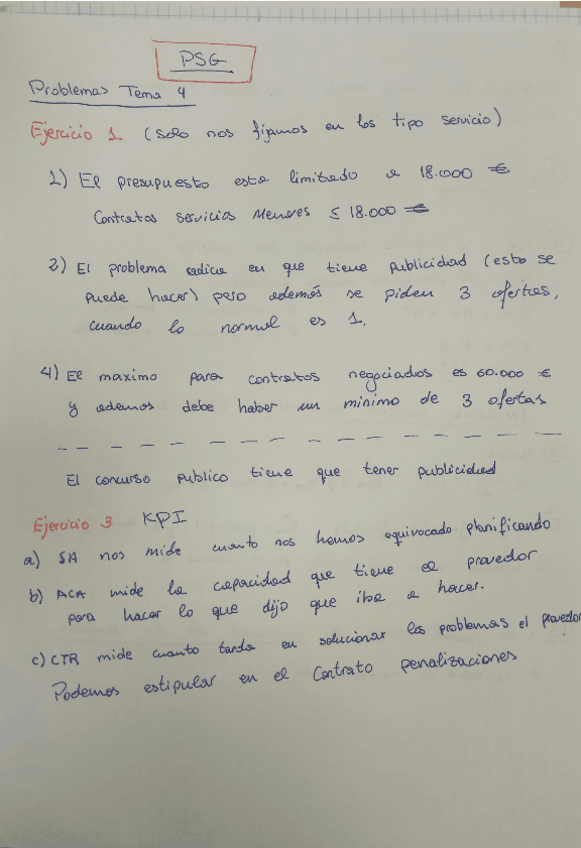 PSG
Problemas Tema 4
Ejercicio 1 (solo nos fijamos en los tipo servicio)
1) El presupuesto esta limitado a 18.000 €
Contratos servicios Menores ≤ 18.000 €
2) El problema radica en que tiene publicidad (esto se
puede hacer) pero además se piden 3 ofertas,
cuando lo normal es 1.
4) El maximo para contratos negociados es 60.000 €
y ademas debe haber un minimo de 3 ofertas
El concurso publico tiene que tener publicidad
Ejercicio 3 KPI
a) SA nos mide cuanto nos hemos equivocado planificando
b) ACA mide la capacidad que tiene el provedor
para hacer lo que dijo que iba a hacer.
c) CTR mide cuanto tarda en solucionar los problemas el provedor
Podemos estipular en el Contrato penalizaciones